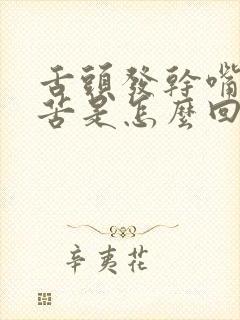 舌頭發幹嘴
苦是怎麼回
辛夷花